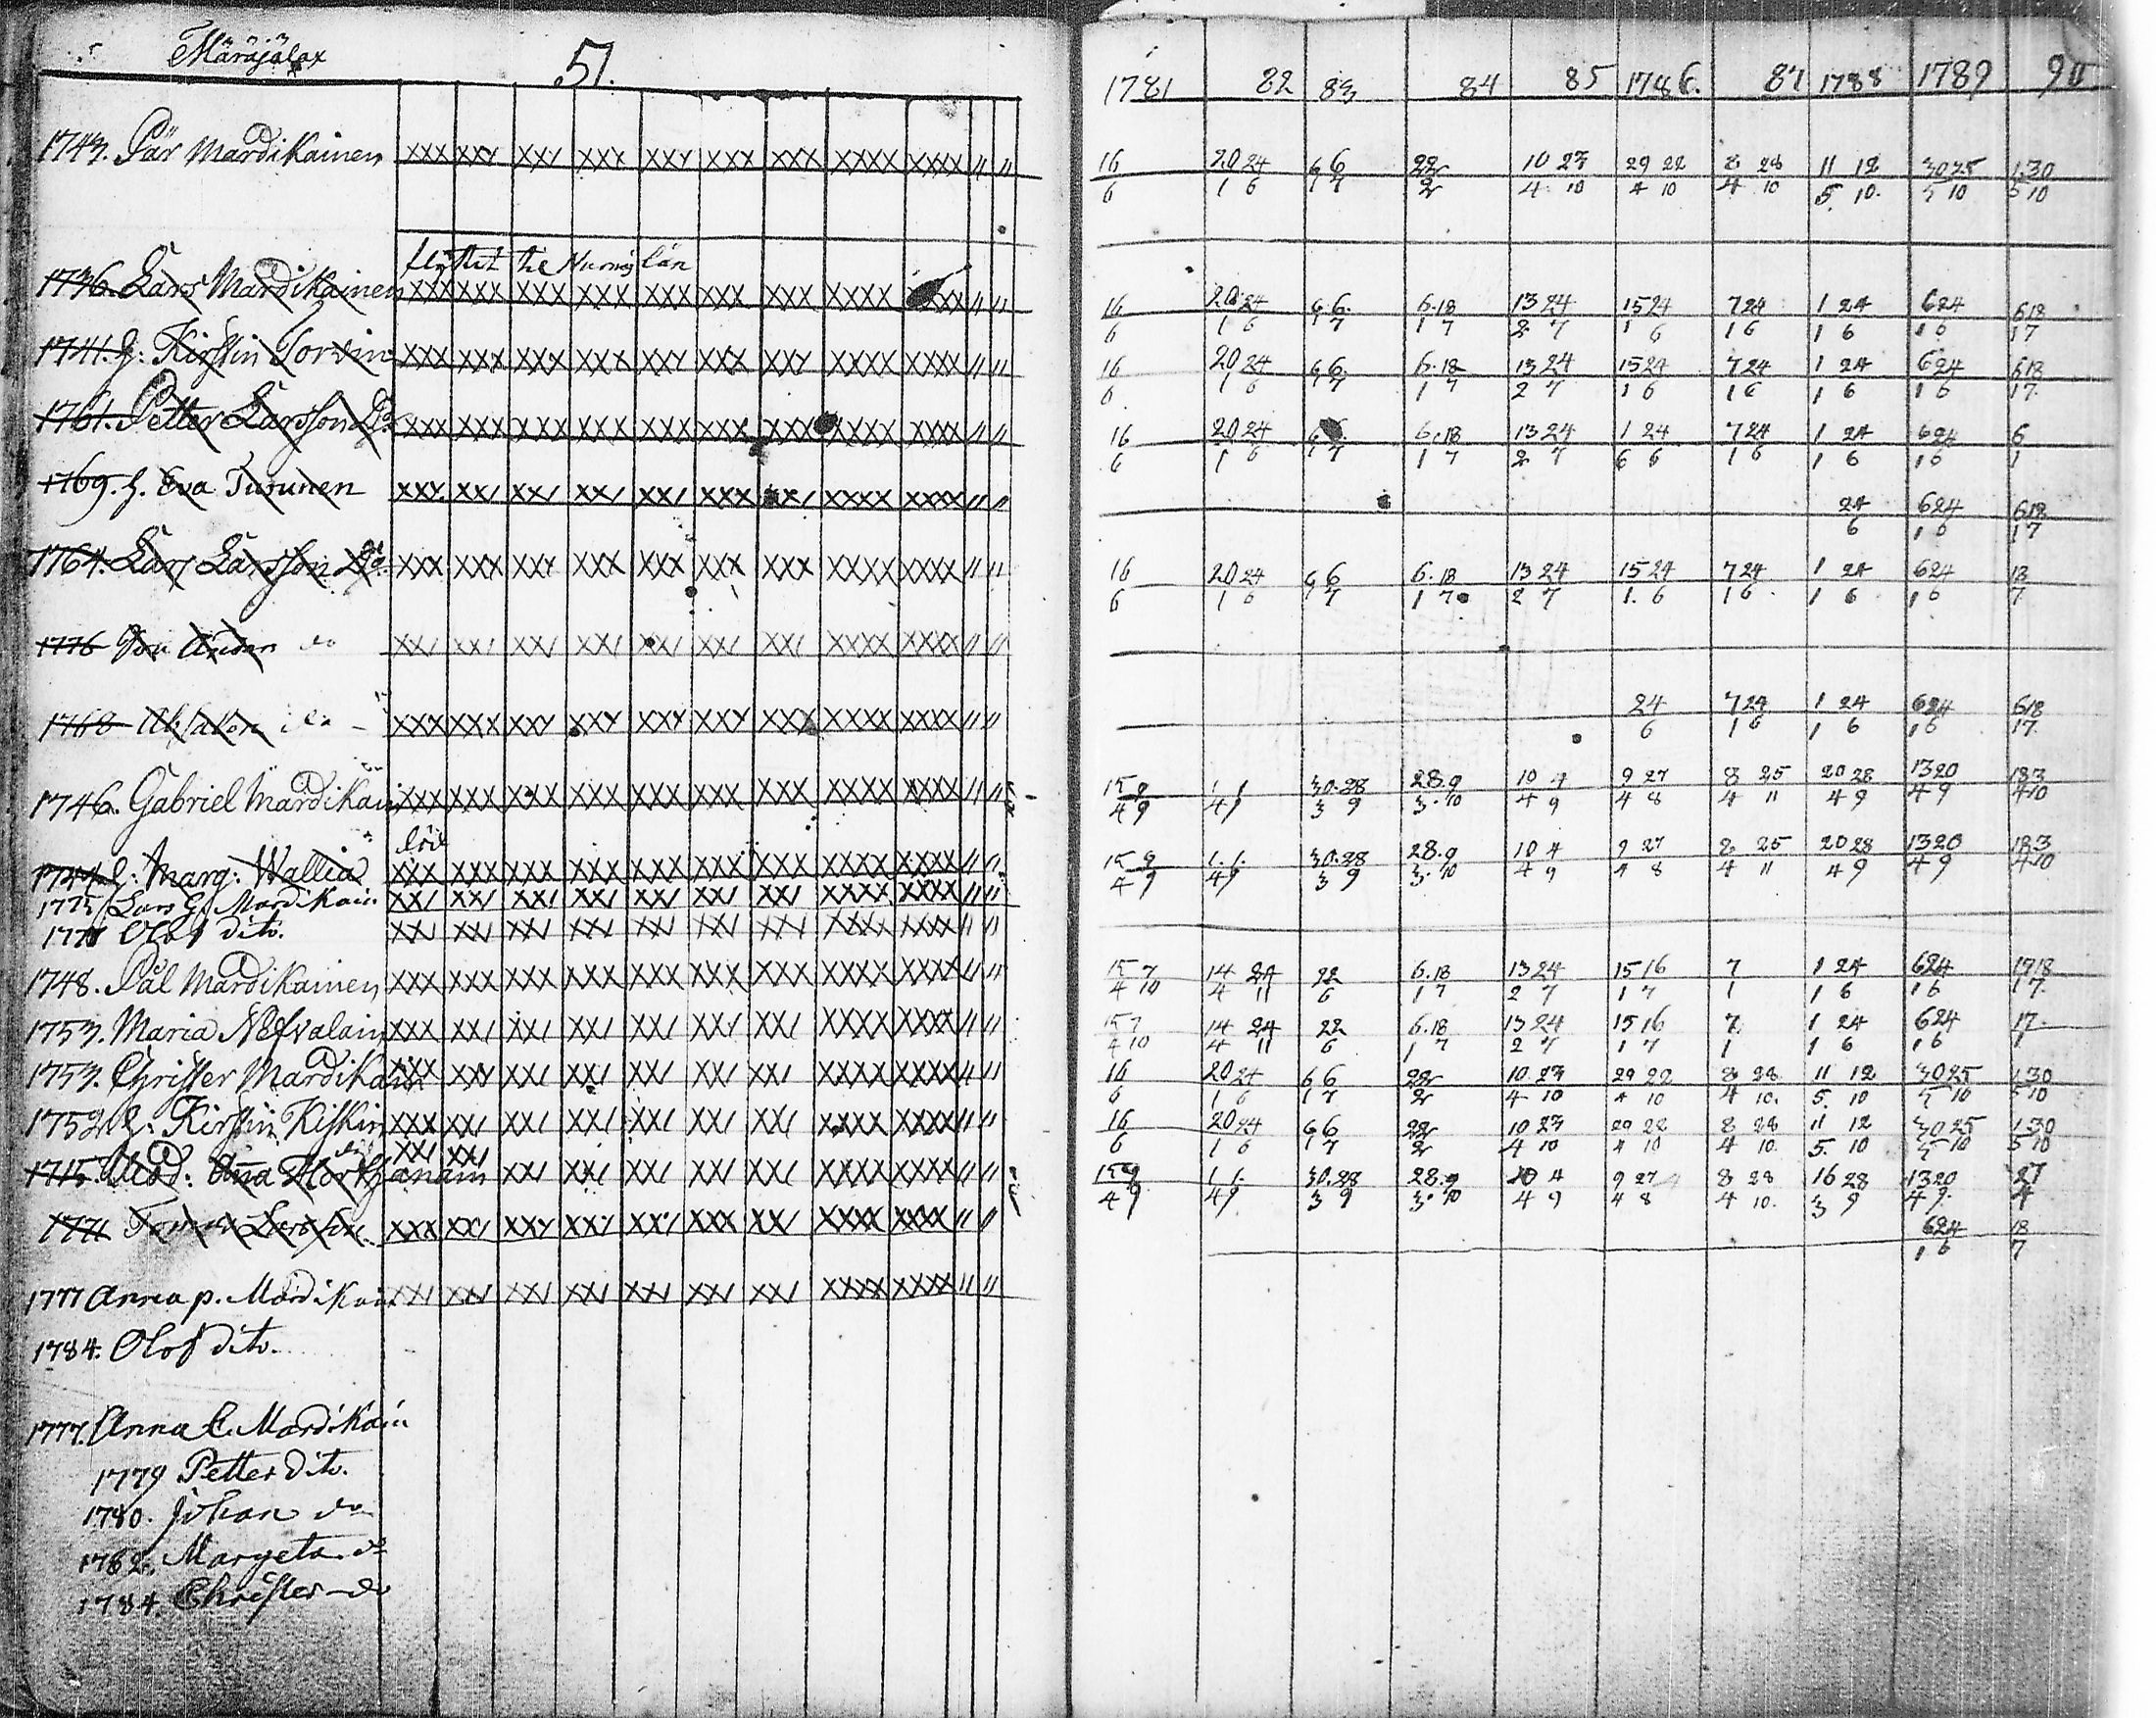 Märäjälax 51.
1781 82 83 84 85 1786. 87 1788 1789 90
1743. Pär Mardikainen xxx xxx xxx xxx xxx xxx xxx xxxx xxxx // //
16/6 20/1 24/6 6/1 6/7 22/2 10/4 23/10 29/4 22/10 8/4 28/10 11/5. 12/10. 30/5 25/10 1/5 30/10
flyttet til Län
1736. Lars Mardikainen xxx xxx xxx xxx xxx xxx xxx xxxx xxxx // //
16/6 20/1 24/6 6/1 6/7 6/1 18/7 13/2 24/7 15/1 24/6 7/1 24/6 1/1 24/6 6/1 24/6 6/1 18/7
1741. h: Kirstin Torvin xxx xxx xxx xxx xxx xxx xxx xxxx xxxx // //
16/6 20/1 24/6 6/1 6/7 6/1 18/7 13/2 24/7 15/1 24/6 7/1 24/6 1/1 24/6 6/1 24/6 6/1 18/7
1761. Petter Larsson Do xxx xxx xxx xxx xxx xxx xxx xxxx xxxx // //
16/6 20/1 24/6 6/1 6/7 6/1 18/7 13/2 24/7 1/6 24/6 7/1 24/6 1/1 24/6 6/1 24/6 6/1
1769. h. Eva Turunen xxx xx/ xx/ xx/ xx/ xxx xx/ xxxx xxxx // //
24/6 6/1 24/6 6/1 18/7
1764. Lars Larsson Do. xxx xxx xxx xxx xxx xxx xxx xxxx xxxx // //
16/6 20/1 24/6 6/1 6/7 6/1 18/7 13/2 24/7 15/1 24/6 7/1 24/6 1/1 24/6 6/1 24/6 18/7
1776 do xx/ xx/ xx/ xx/ xx/ xx/ xx/ xxxx xxxx // //
1768 Absalon do xxx xxx xxx xxx xxx xxx xxx xxxx xxxx // //
24/6 7/1 24/6 1/1 24/6 6/1 24/6 6/1 18/7
1746. Gabriel Mardikain xxx xxx xxx xxx xxx xxx xxx xxxx xxxx // //
15/4 9/9 1/4 1/9 30/3 28/9 28/3 9/10 10/4 4/9 9/4 27/8 8/4 25/11 20/4 28/9 13/4 20/9 18/4 3/10
död
h: Marg: Wallia xxx xxx xxx xxx xxx xxx xxx xxxx xxxx // //
15/4 9/9 1/4 1/9 30/3 28/9 28/3 9/10 10/4 4/9 9/4 27/8 8/4 25/11 20/4 28/9 13/4 20/9 18/4 3/10
1775 Lars G. Mardikain xx/ xx/ xx/ xx/ xx/ xx/ xx/ xxxx xxxx // //
Olof dito. xx/ xx/ xx/ xx/ xx/ xx/ xx/ xxxx xxxx // //
1748. Pål Mardikainen xxx xxx xxx xxx xxx xxx xxx xxxx xxxx // //
15/4 7/10 14/4 24/11 22/6 6/1 18/7 13/2 24/7 15/1 16/7 7/1 1/1 24/6 6/1 24/6 17/1 18/7
1753. Maria Nefvalain xxx xx/ xx/ xx/ xx/ xx/ xx/ xxxx xxxx // //
15/4 7/10 14/4 24/11 22/6 6/1 18/7 13/2 24/7 15/1 16/7 7/1 1/1 24/6 6/1 24/6 17/1
1753. Christer Mardikain xxx xx/ xx/ xx/ xx/ xx/ xx/ xxxx xxxx // //
16/6 20/1 24/6 6/1 6/7 22/2 10/4 23/10 29/4 22/10 8/4 28/10 11/5 12/10 30/5 25/10 1/5 30/10
1752 h: Kirstin Kiskin xxx xx/ xx/ xx/ xx/ xx/ xx/ xxxx xxxx // //
16/6 20/1 24/6 6/1 6/7 22/2 10/4 23/10 29/4 28/10 8/4 28/10 11/5 12/10 30/5 25/10 1/5 30/10
1715. Modd: Anna xx/ xx/ xx/ xx/ xx/ xx/ xx/ xxxx xxxx // //
15/4 9/9 1/4 1/9 30/3 28/9 28/3 9/10 10/4 4/9 9/4 27/8 8/4 28/10 16/3 28/9 13/4 20/9 27/4
1771 Larsson xxx xx/ xxx xx/ xx/ xxx xx/ xxxx xxxx // //
6/1 24/6 18/7
1777 Anna p. Mardikain xx/ xx/ xx/ xx/ xx/ xx/ xx/ xxxx xxxx // //
1784. Olof dito.
1777. Anna C. Mardikain
1779 Petter dito.
1780. Johan do
1782. Margeta. do
1784. Christer do